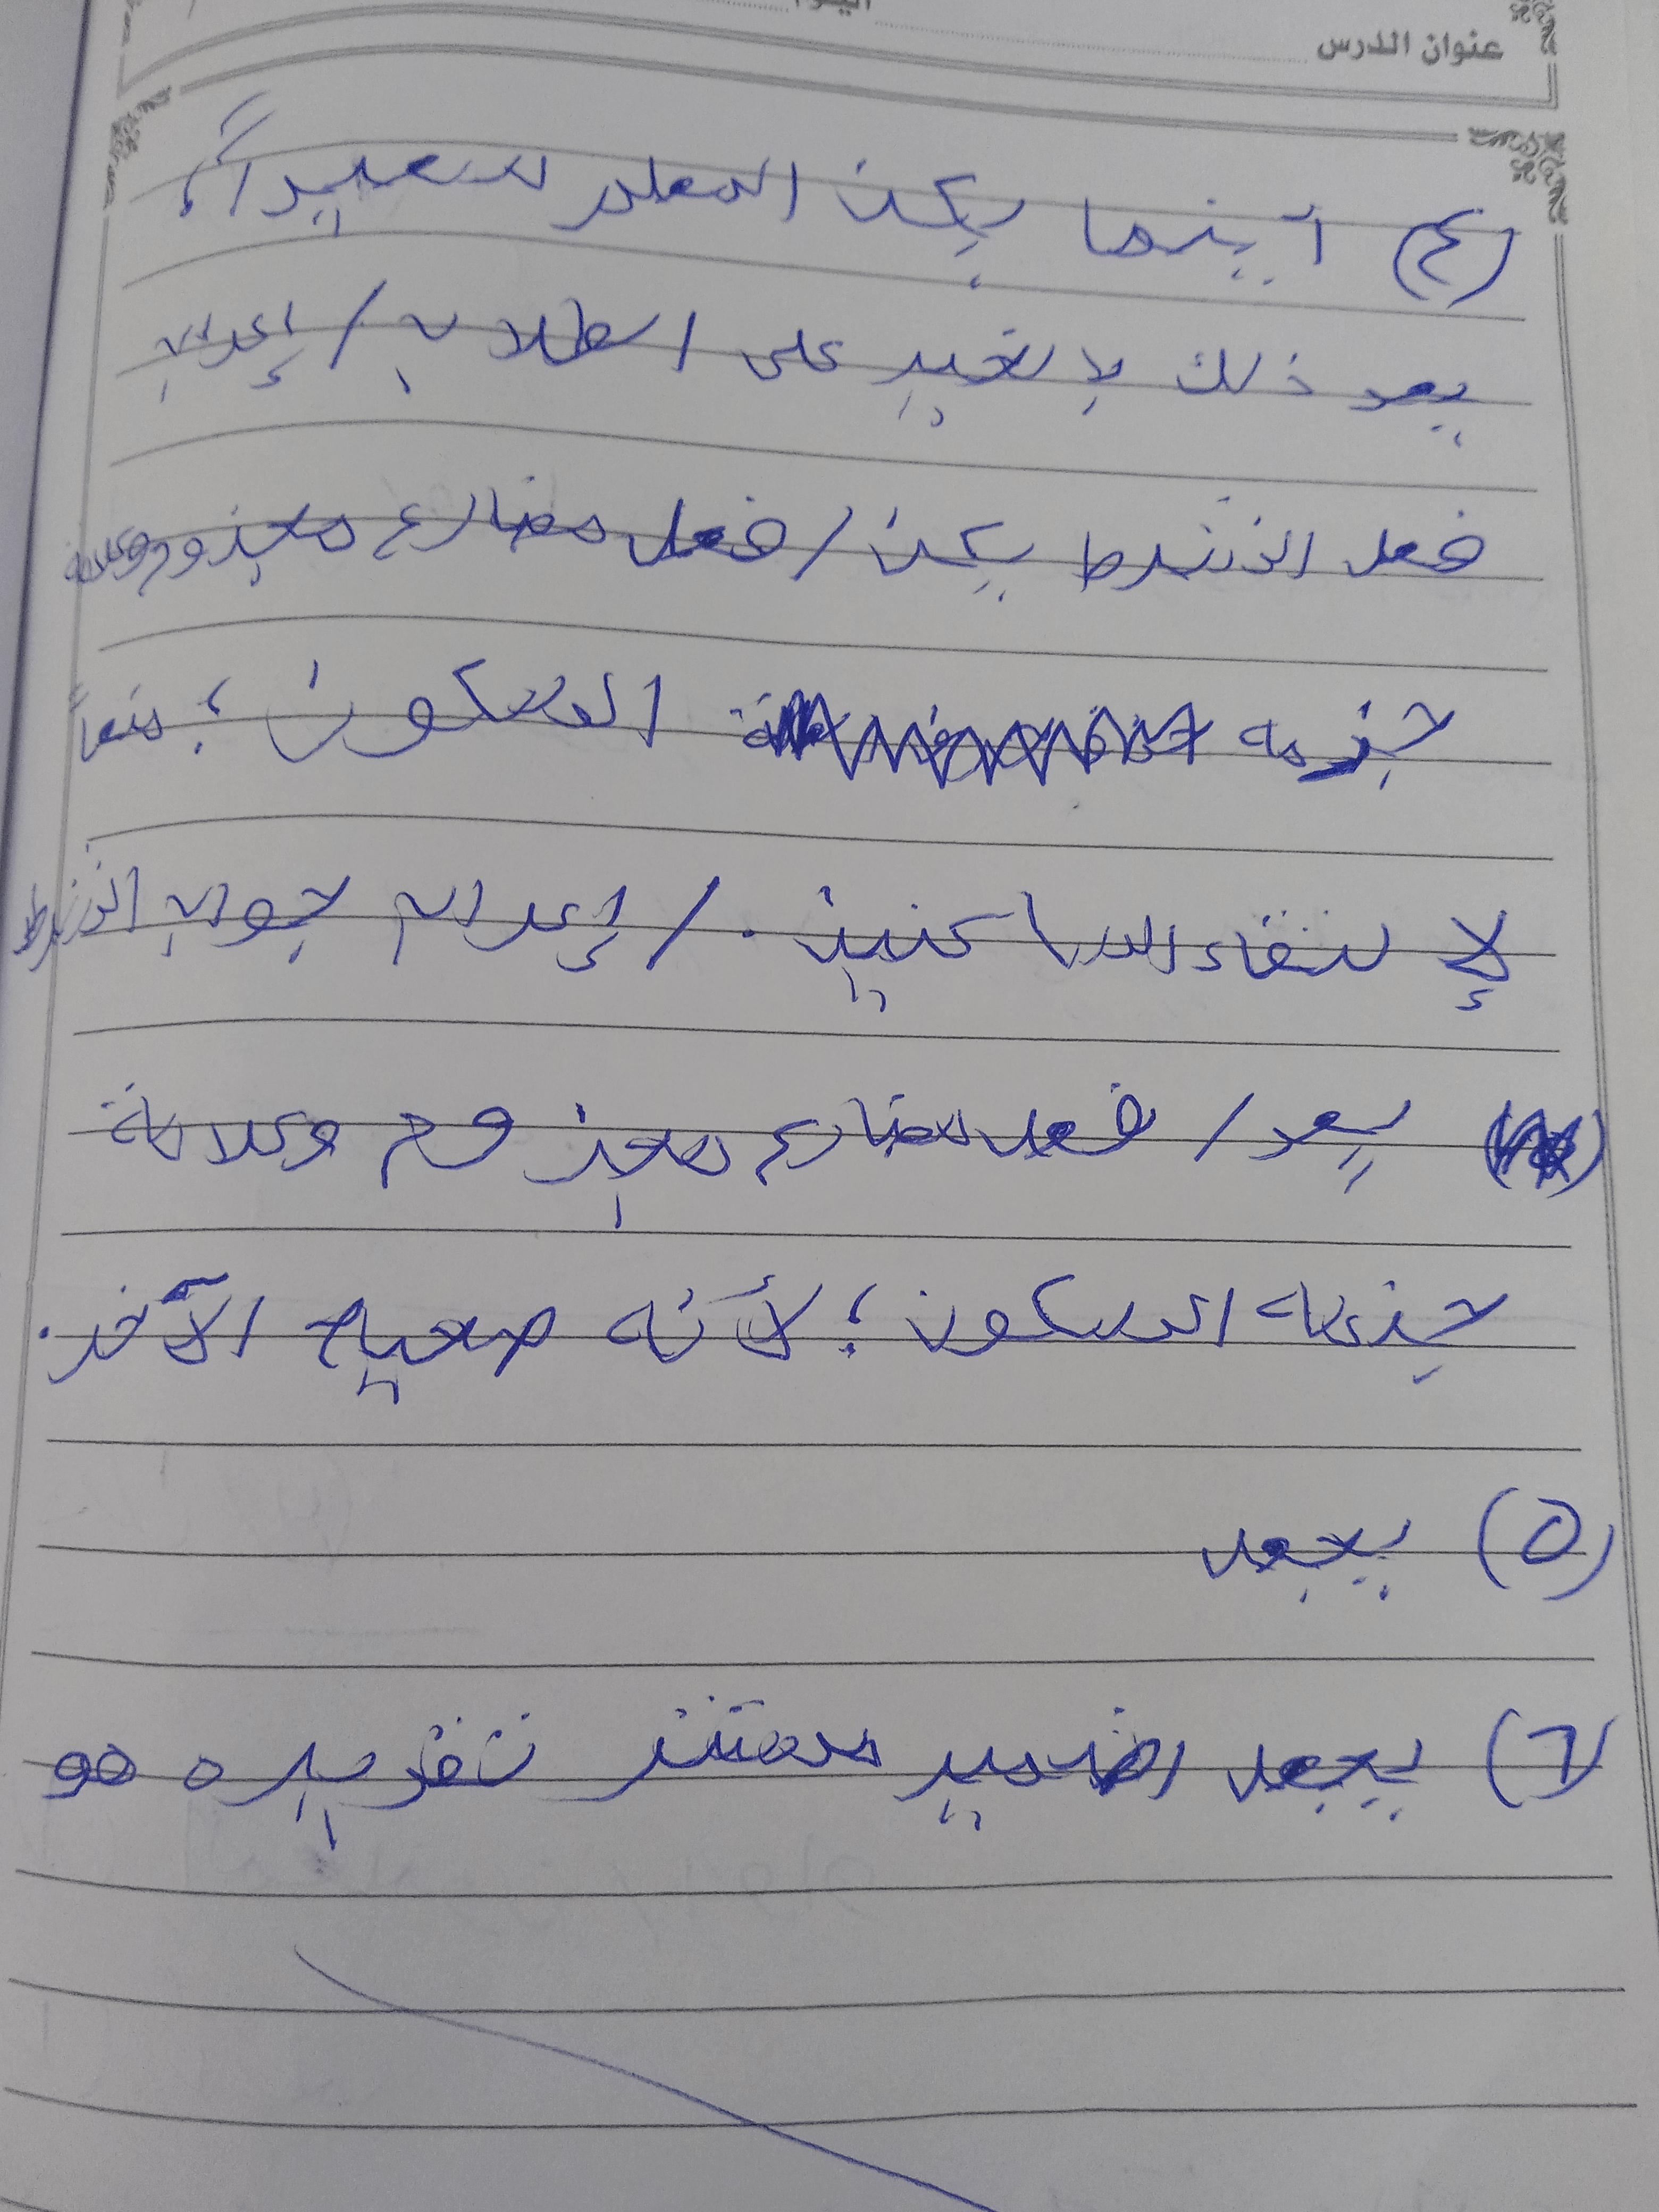 عنوان الدرس
(٤) أينما يكن المعلم سعيداً،
يعد ذلك بالخير على الطلاب / إعراب
فعل الشرط يكن / فعل مضارع مجزوم وعلامة
جزمه السكون؛ منعاً
لإلتقاء الساكنين. / إعراب جواب الشرط
يعد / فعل مضارع مجزوم وعلامة
جزمه السكون؛ لأنه صحيح الآخر.
(٥) يجعل
(٦) يجعل الضمير مستتر تقديره هو